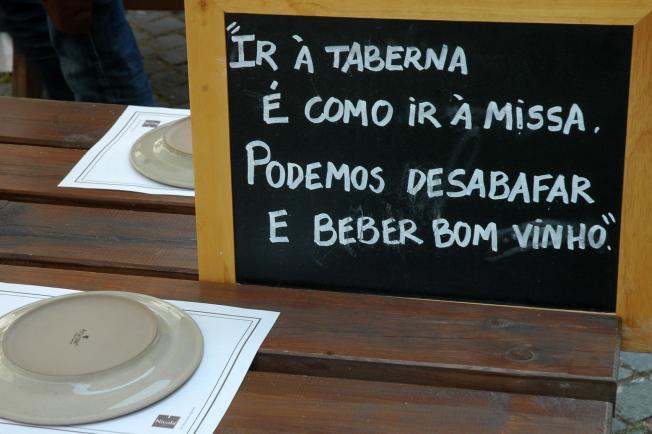 "IR À TABERNA
É COMO IR À MISSA.
PODEMOS DESABAFAR
E BEBER BOM VINHO."
Nicola